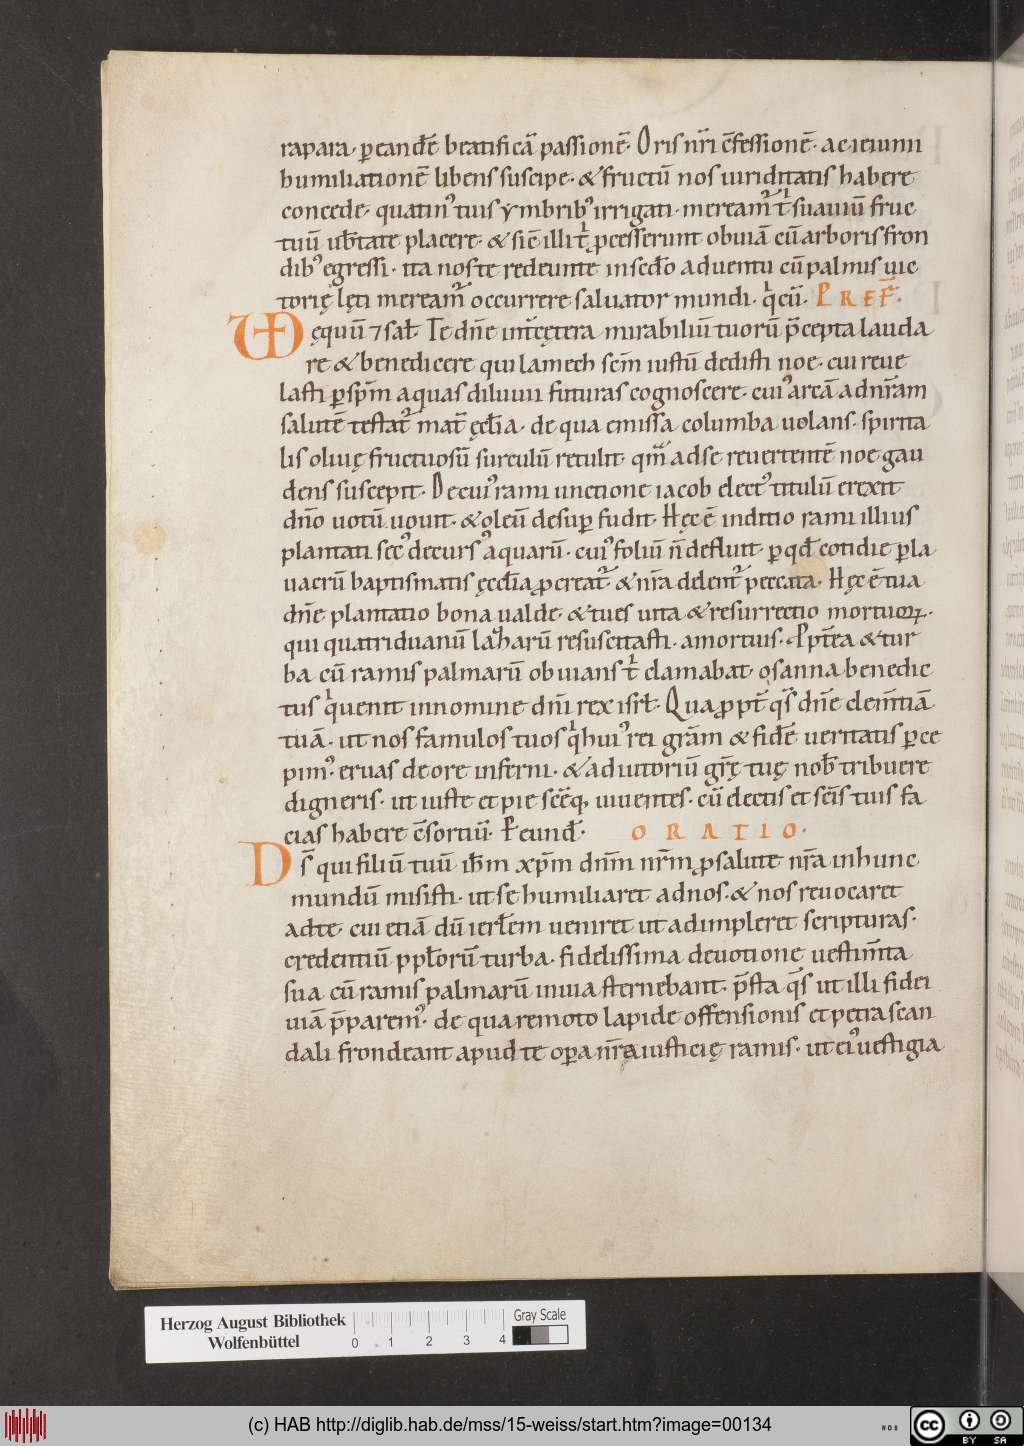 rapara· ꝑ eandē beatificā passionē· Oris nr̄i c̄fessionē· ac ieiunii
humiliationē libens suscipe· & fructū nos uiriditatis habere
concede· quatinꝰ tuis ymbribꝰ irrigati· mereamr̄ t̄ suauiū fruc
tuū ub̄tate placere· & sic̄ illi t̄ p̄cesserunt obuiā cū arboris fron
dibꝰ egressi· ita nos te redeunte in sc̄do aduentu cū palmis uic
torię lęti mereamr̄ occurrere saluator mundi· q̄ cū· PREF̄·
VD ęquū ⁊ sal̄· Te dn̄e int̄ cętera mirabiliū tuorū p̄cepta lauda
re & benedicere qui lamech sem̄ iustū dedisti noe· cui reue
lasti ꝑ sp̄m aquas diluuii futuras cognoscere· cuiꝰ arcā ad nr̄am
salutē testatr̄ mat̄ ęcl̄ia· de qua emissa columba uolans· spirita
lis oliuę fructuosū surculū retulit· qm̄ ad se reuertentē noe gau
dens suscepit· De cuiꝰ rami unctione iacob electꝰ titulū erexit
dn̄o uotū uouit· & oleū desuꝑ fudit· Hęc ē inditio rami illius
plantati secꝰ decursꝰ aquarū· cuiꝰ foliū n̄ defluit· ꝑ qd̄ cotidie ꝑ la
uacrū baptismatis ęccl̄ia ꝓcreatr̄· & nr̄a delentr̄ peccata· Hęc ē tua
dn̄e plantatio bona ualde· & tu es uita & resurrectio mortuoꝝ·
qui quatriduanū lazharū resuscitasti· a mortuis· Ppt̄ea & tur
ba cū ramis palmarū obuians t̄ clamabat· osanna benedic
tus q̄ uenit in nomine dn̄i rex isrl̄· Quaꝓpt̄ qs̄ dn̄e clem̄tiā
tuā· ut nos famulos tuos q̄ huiꝰ rei grām & fidē ueritatis ꝑce
pimꝰ· eruas de ore inferni· & adiutoriū gr̄ę tuę nob̄ tribuere
digneris· ut iuste et pie sc̄eq; uiuentes· cū electis et sc̄is tuis fa
cias habere c̄sortiū· P eund̄· ORATIO·
Ds̄ qui filiū tuū ih̄m xp̄m dn̄m nr̄m ꝓ salute nr̄a in hunc
mundū misisti· ut se humiliaret ad nos· & nos reuocaret
ad te· cui etiā dū ierl̄em ueniret ut adimpleret scripturas·
credentiū ppl̄orū turba· fidelissima deuotione uestim̄ta
sua cū ramis palmarū in uia sternebant· p̄sta qs̄ ut illi fidei
uiā p̄paremꝰ· de qua remoto lapide offensionis et petra scan
dali frondeant apud te oꝑa nr̄a iusticię ramis· ut eiꝰ uestigia
Herzog August Bibliothek
Wolfenbüttel
0 1 2 3 4
Gray Scale
(c) HAB http://diglib.hab.de/mss/15-weiss/start.htm?image=00134
WDB
cc BY SA